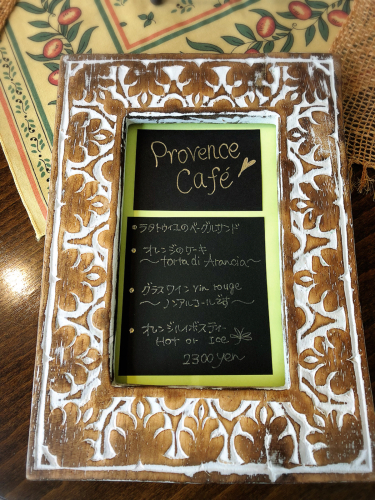 Provence
Café
・ラタトゥイユのベーグルサンド
・オレンジのケーキ
〜torta di Arancia〜
・グラスワイン vin rouge
〜ノンアルコールです〜
・オレンジルイボスティー
Hot or Ice
2300yen